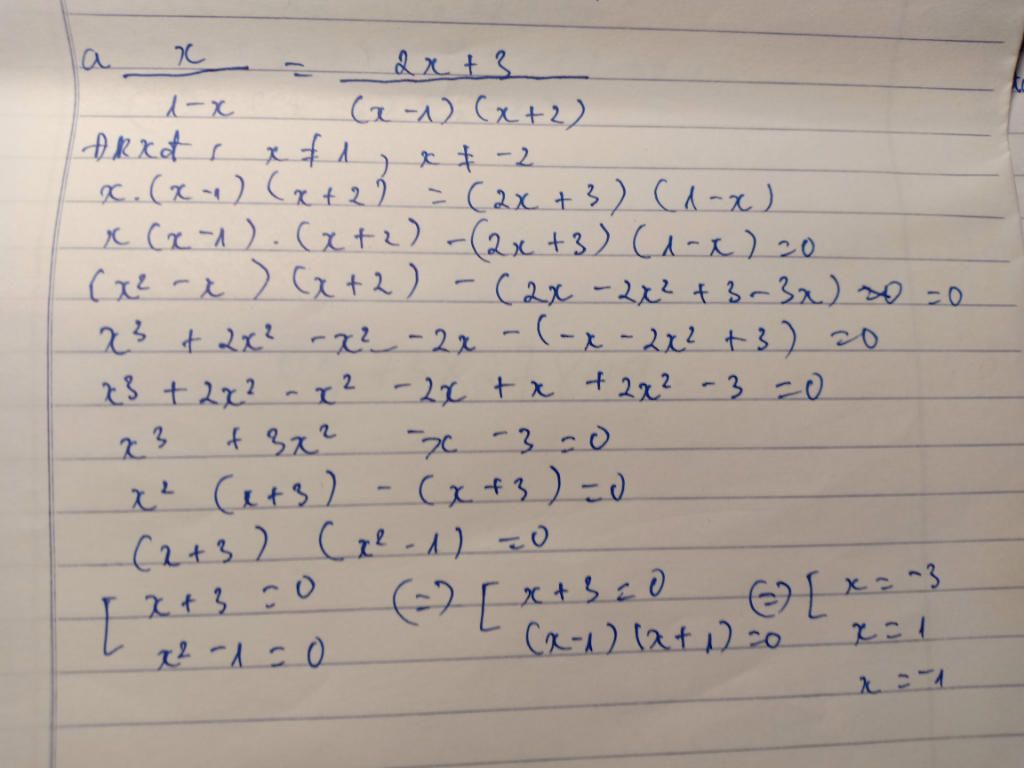 a x/(1-x) = (2x+3)/((x-1)(x+2))
ĐKXĐ: x ≠ 1, x ≠ -2
x.(x-1)(x+2) = (2x+3)(1-x)
x(x-1).(x+2) -(2x+3)(1-x)=0
(x² - x)(x+2) - (2x - 2x² + 3-3x) =0
x³ + 2x² - x² - 2x - (-x - 2x² + 3) =0
x³ + 2x² - x² - 2x + x + 2x² - 3 =0
x³ + 3x² -x - 3 =0
x² (x+3) - (x+3)=0
(x+3) (x² - 1) =0
[ x+3 = 0 (=) [ x+3=0 (=) [ x = -3
x² - 1 = 0 (x-1)(x+1)=0 x = 1
x = -1